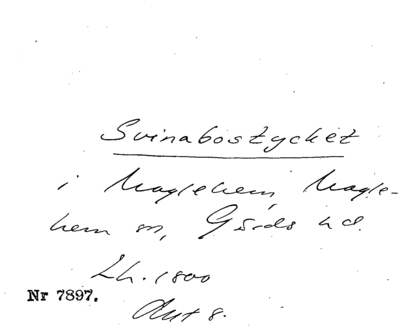 Svinabostycket
i Maglehem, Magle-
hem sn, Gärds hd.
Lh. 1800
Nr 7897.
Akt 8.